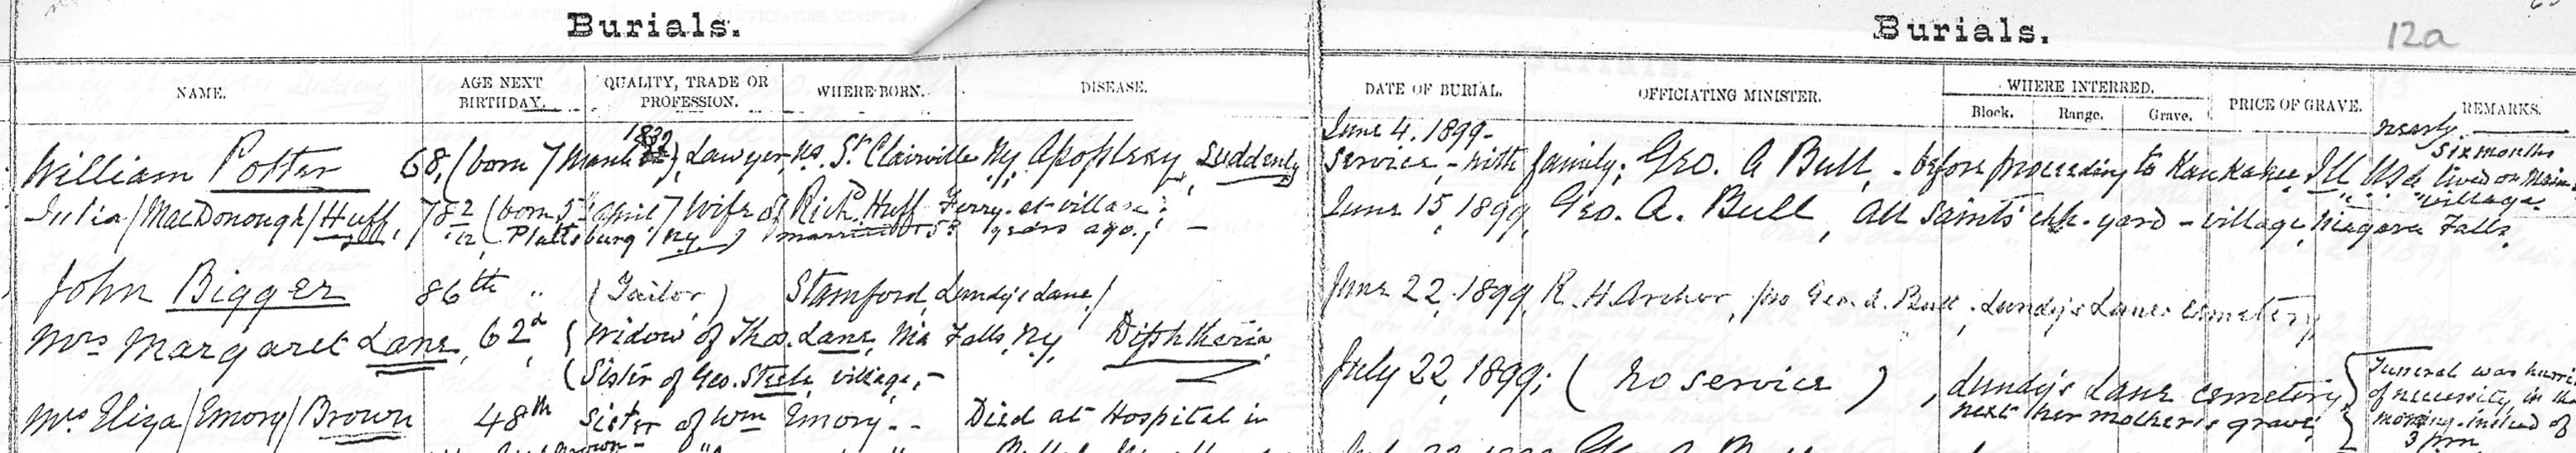 Burials.
Burials.
12a
NAME.
AGE NEXT BIRTHDAY.
QUALITY, TRADE OR PROFESSION.
WHERE BORN.
DISEASE.
DATE OF BURIAL.
OFFICIATING MINISTER.
WHERE INTERRED.
Block. Range. Grave.
PRICE OF GRAVE.
REMARKS.
William Potter 68, (born 7 March 1832), Lawyer, St. Clairville Ny, Apoplexy, Suddenly
June 4. 1899 -
Service, - with family; Geo. A Bull, - before proceeding to Kankakee, Ill Usa
nearly six months lived on Main village.
Julia / MacDonough / Huff, 78 2/12 (born 5th april / Wife of Richd. Huff Ferry. at village;
Plattsburg / Ny) married years ago; -
June 15, 1899, Geo. A. Bull, All Saints' chh. yard - village, Niagara Falls.
John Bigger 86th " (Tailor) Stamford, Lundy's Lane /
June 22, 1899, R. H. Archer, pro Geo. A. Bull. Lundy's Lane cemetery
Mrs Margaret Lane, 62d, (Widow of Thos. Lane, Nia Falls, Ny, Diphtheria,
(Sister of Geo. Steele, village, -
July 22, 1899; (no service), Lundy's Lane cemetery,
next her mother's grave;
Funeral was hurri
of necessity in the
morning, instead of
3 pm
Mrs Eliza / Emory / Brown 48th Sister of Wm Emory - - Died at Hospital in